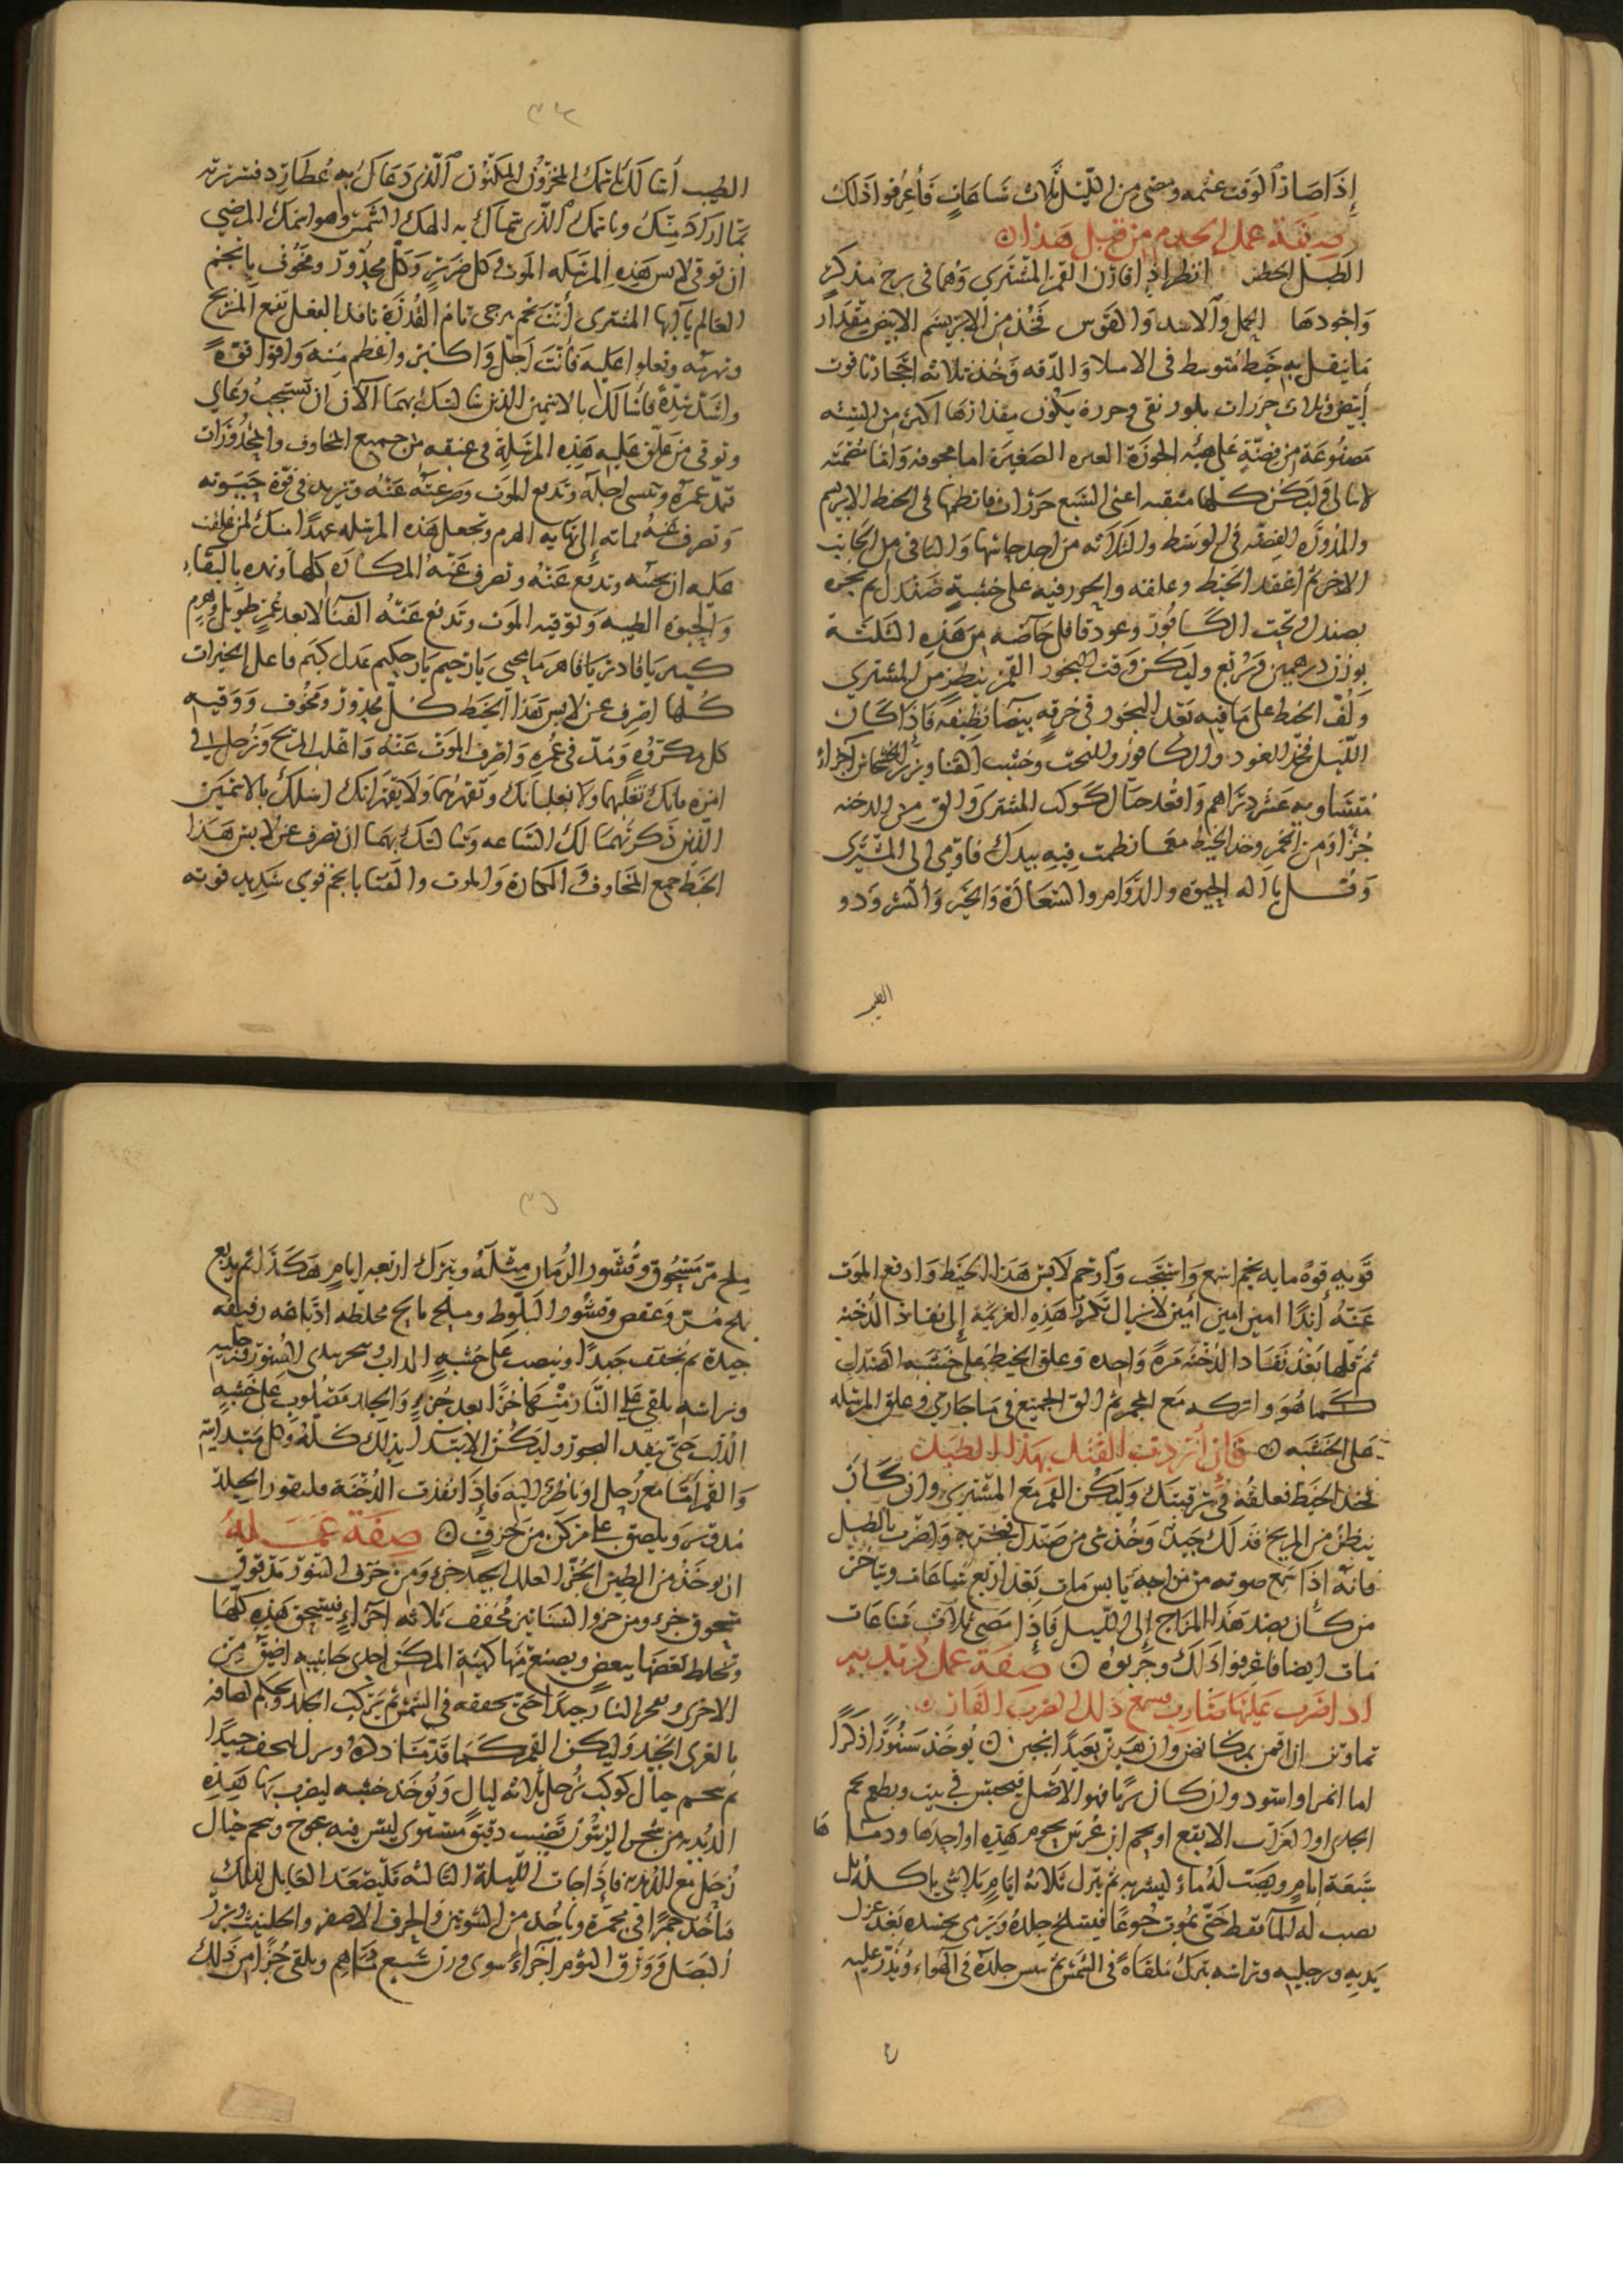 إذا صار الوقت عتمه ومضى من الليل ثلاث ساعات فأعرفوا ذلك
صفة عمل من قبل هذا
الطبل انظر اذا قارن القمر المشتري وهما في برج مذكر
واجودها الحمل والاسد والقوس فخذ من الابريسم الابيض مقدار
ما يفتل به خيط متوسط في والدقه وخذ ثلاثة احجار ياقوت
أبيض وثلاث خرزات بلور نقي وحرزة يكون مقدارها اكبر من الستة
مصنوعة من فضة على هيئه الجوزة الصغيرة اما مجوفه واما مصمته
لا تبالي وليكن كلها مثقبه اعني السبع خرزات فانظمها في الخيط الابريسم
والمدوره الفضه في الوسط والثلاثه من احد جانبيها والباقي من الجانب
الاخر ثم اعقد الخيط وعلقه والبخور فيه على خشبة صندل ثم بخره
بصندل وتحت الكافور وعود قاقلي من هذه الثلثة
بوزن درهمين وربع وليكن وقت البخور القمر ينظر من المشتري
ولف الخيط على ما فيه بعد البخور في خرقه بيضا نظيفه فاذا كان
الليل فخذ العود والكافور والبخت وخشب وبزر الخشخاش اجزاء
متساويه عشر دراهم واقعد حيال كوكب المشتري والق من الدخنه
جزا في الجمر وخذ الخيط مع ما نظمت فيه بيدك فاومي الى المشتري
وقل يا اله الحيوه والدوام والسعادة والخير والسرور
الطيب
الطيب أسالك باسمك المخزون المكنون الذي دعاك به عطارد
لما اراد منك وباسمك الذي سماك به الهك الشمس وهو اسمك المرضي
ان توقي لابس هذه المرسله الموت وكل ضرر وكل محذور ومخوف يا نجم
العالم يا ايها المشتري أنت نجم مرجى تام القدرة نافذ الفعل تقمع المريخ
وتهزمه وتعلوا عليه فانت اجل واكبر واعظم منه واقوا قوة
واشد شدة فاسالك بالاسمين الذين سالتك بهما الآن ان تستجيب دعاي
وتوقي من علق عليه هذه المرسلة في عنقه من جميع المخاوف والمحذورات
تمد عمره وتنسي اجله وتدفع الموت وصرعته عنه وتزيد في قوة حيوته
وتصرف عنه مماته إلى نهايه الهرم وتجعل هذه المرسله عهدا منك لمن علقت
عليه ان تحبه وتدفع عنه وتصرف عنه المكاره كلها وتمده بالبقاء
والحيوه الطيبه وتوقيه الموت وتدفع عنه الفنا الا بعد عمر طويل وهرم
كبير يا قادر يا قاهر يا محيي يا رحيم يا حكيم عدل كريم فاعل الخيرات
كلها اصرف عن لابس هذا الخيط كل محذور ومخوف ووقيه
كل مكروه ومد في عمره واصرف الموت عنه واغلب المريخ وزحل في
امره فانك تغلبهما ولا يغلبانك وتقهرهما ولا يقهرانك اسالك بالاسمين
الذين ذكرتهما لك الساعه وسالتك بهما ان تصرف عن لابس هذا
الخيط جميع المخاوف والمكاره والموت والفنا يا نجم قوي شديد قوته
قويه قوة ما به نجم اسمع واستجب وارحم لابس هذا الخيط وادفع الموت
عنه أبدا امين امين أمين لا تزال تكرر هذه العزيمة إلى نفاذ الدخنه
ثم قلها بعد نفاد الدخنه مرة واحده وعلق الخيط على خشبه الصندل
كما هو واتركه مع المجمر ثم الق الجميع في ما جاري وعلق المرسله
على الخشبه فإن أردت القتل بهذا الطبل
فخذ الخيط فعلقه في رقبتك وليكن القمر مع المشتري وان كان
ينظر من المريخ فذلك جيد وخذ شي من صندل فبخر به واضرب بالطبل
فانه اذا سمع صوته من مزاجه يابس مات بعد اربع ساعات ويتاخر
من كان بضد هذا المزاج إلى الليل فإذا مضى ثلاث ساعات
مات ايضا فاعرفوا ذلك وجربوه صفة عمل دبدبه
اذا ضرب عليها ضارب فسمع ذلك الضرب الفار
تماوتن ان اقمن بمكانهن وان هربن بعيدا انجين يوخذ سنورا ذكرا
اما انمر او اسود وان كان بريا فهو الاصل فيحبس في بيت ويطعم لحم
الجدي او الغراب الابقع او لحم ابن عرس لحوم هذه او احدها ودماها
سبعة ايام ويصب له ماء ليشربه ثم يترك ثلاثه ايام بلا شي ياكله بل
يصب له الما فقط حتى يموت جوعا فيسلخ جلده ويرمى بجسده بعد عزل
يديه ورجليه وراسه يترك ملقاة في الشمس ثم يبس جلده في الهواء ويذر عليه
ملح مر مسحوق وقشور الرمان مثله ويترك اربعه ايام هكذا ثم يدبغ
بملح مر وعفص وقشور البلوط وملح مالح مخلطه دباغه رفيقه
جيدة ثم يجفف جيدا وينصب على خشبه الداب ويبخر بيدي السنور ورجليه
وراسه يلقي على النار منها جزا بعد جزء والجلد مصلوب على خشبه
الدلب حتى ينفد البخور وليكن الابتدا بذلك كله وكل مبتداته
والقمر اما مع زحل او ناظر اليه فإذا نفدت الدخنة الجيلد
ويلصق على مركن من خزف صفة عمله
ان يوخذ من الطين الحر العلك الجيد جزء ومن خزف التنور مدقوق
منحوق جزء ومن خرو السنانير مجفف ثلاثه اجزاء فيسحق هذه كلها
وتخلط بعضها ببعض ويصنع منها كهيئة المركن احدى جانبيه اضيق من
الاخرى وبحر النار جيدا حتى يجففه في الشمس ثم يركب الجلد ويحكم لصاقه
بالغرى الجيد وليكن القمر كما قدمنا ذكره ويترك يجف جيدا
ثم ينجم حيال كوكب زحل ثلاثه ليال ويوخذ خشبه ليضرب بها هذه
الدبدبه من شجر الزيتون قضيب دقيق مستوي ليس فيه عوج وينجم حيال
زحل مع الدبدبه فإذا جات الليلة الثالثه فليصعد العامل لذلك
فياخذ جمرا في مجمرة وياخذ من الشونيز والحرف الاصفر والحلتيت وبزر
البصل وورق الثوم اجزاء سوى وزن سبع دراهم ويلقي جزا من ذلك